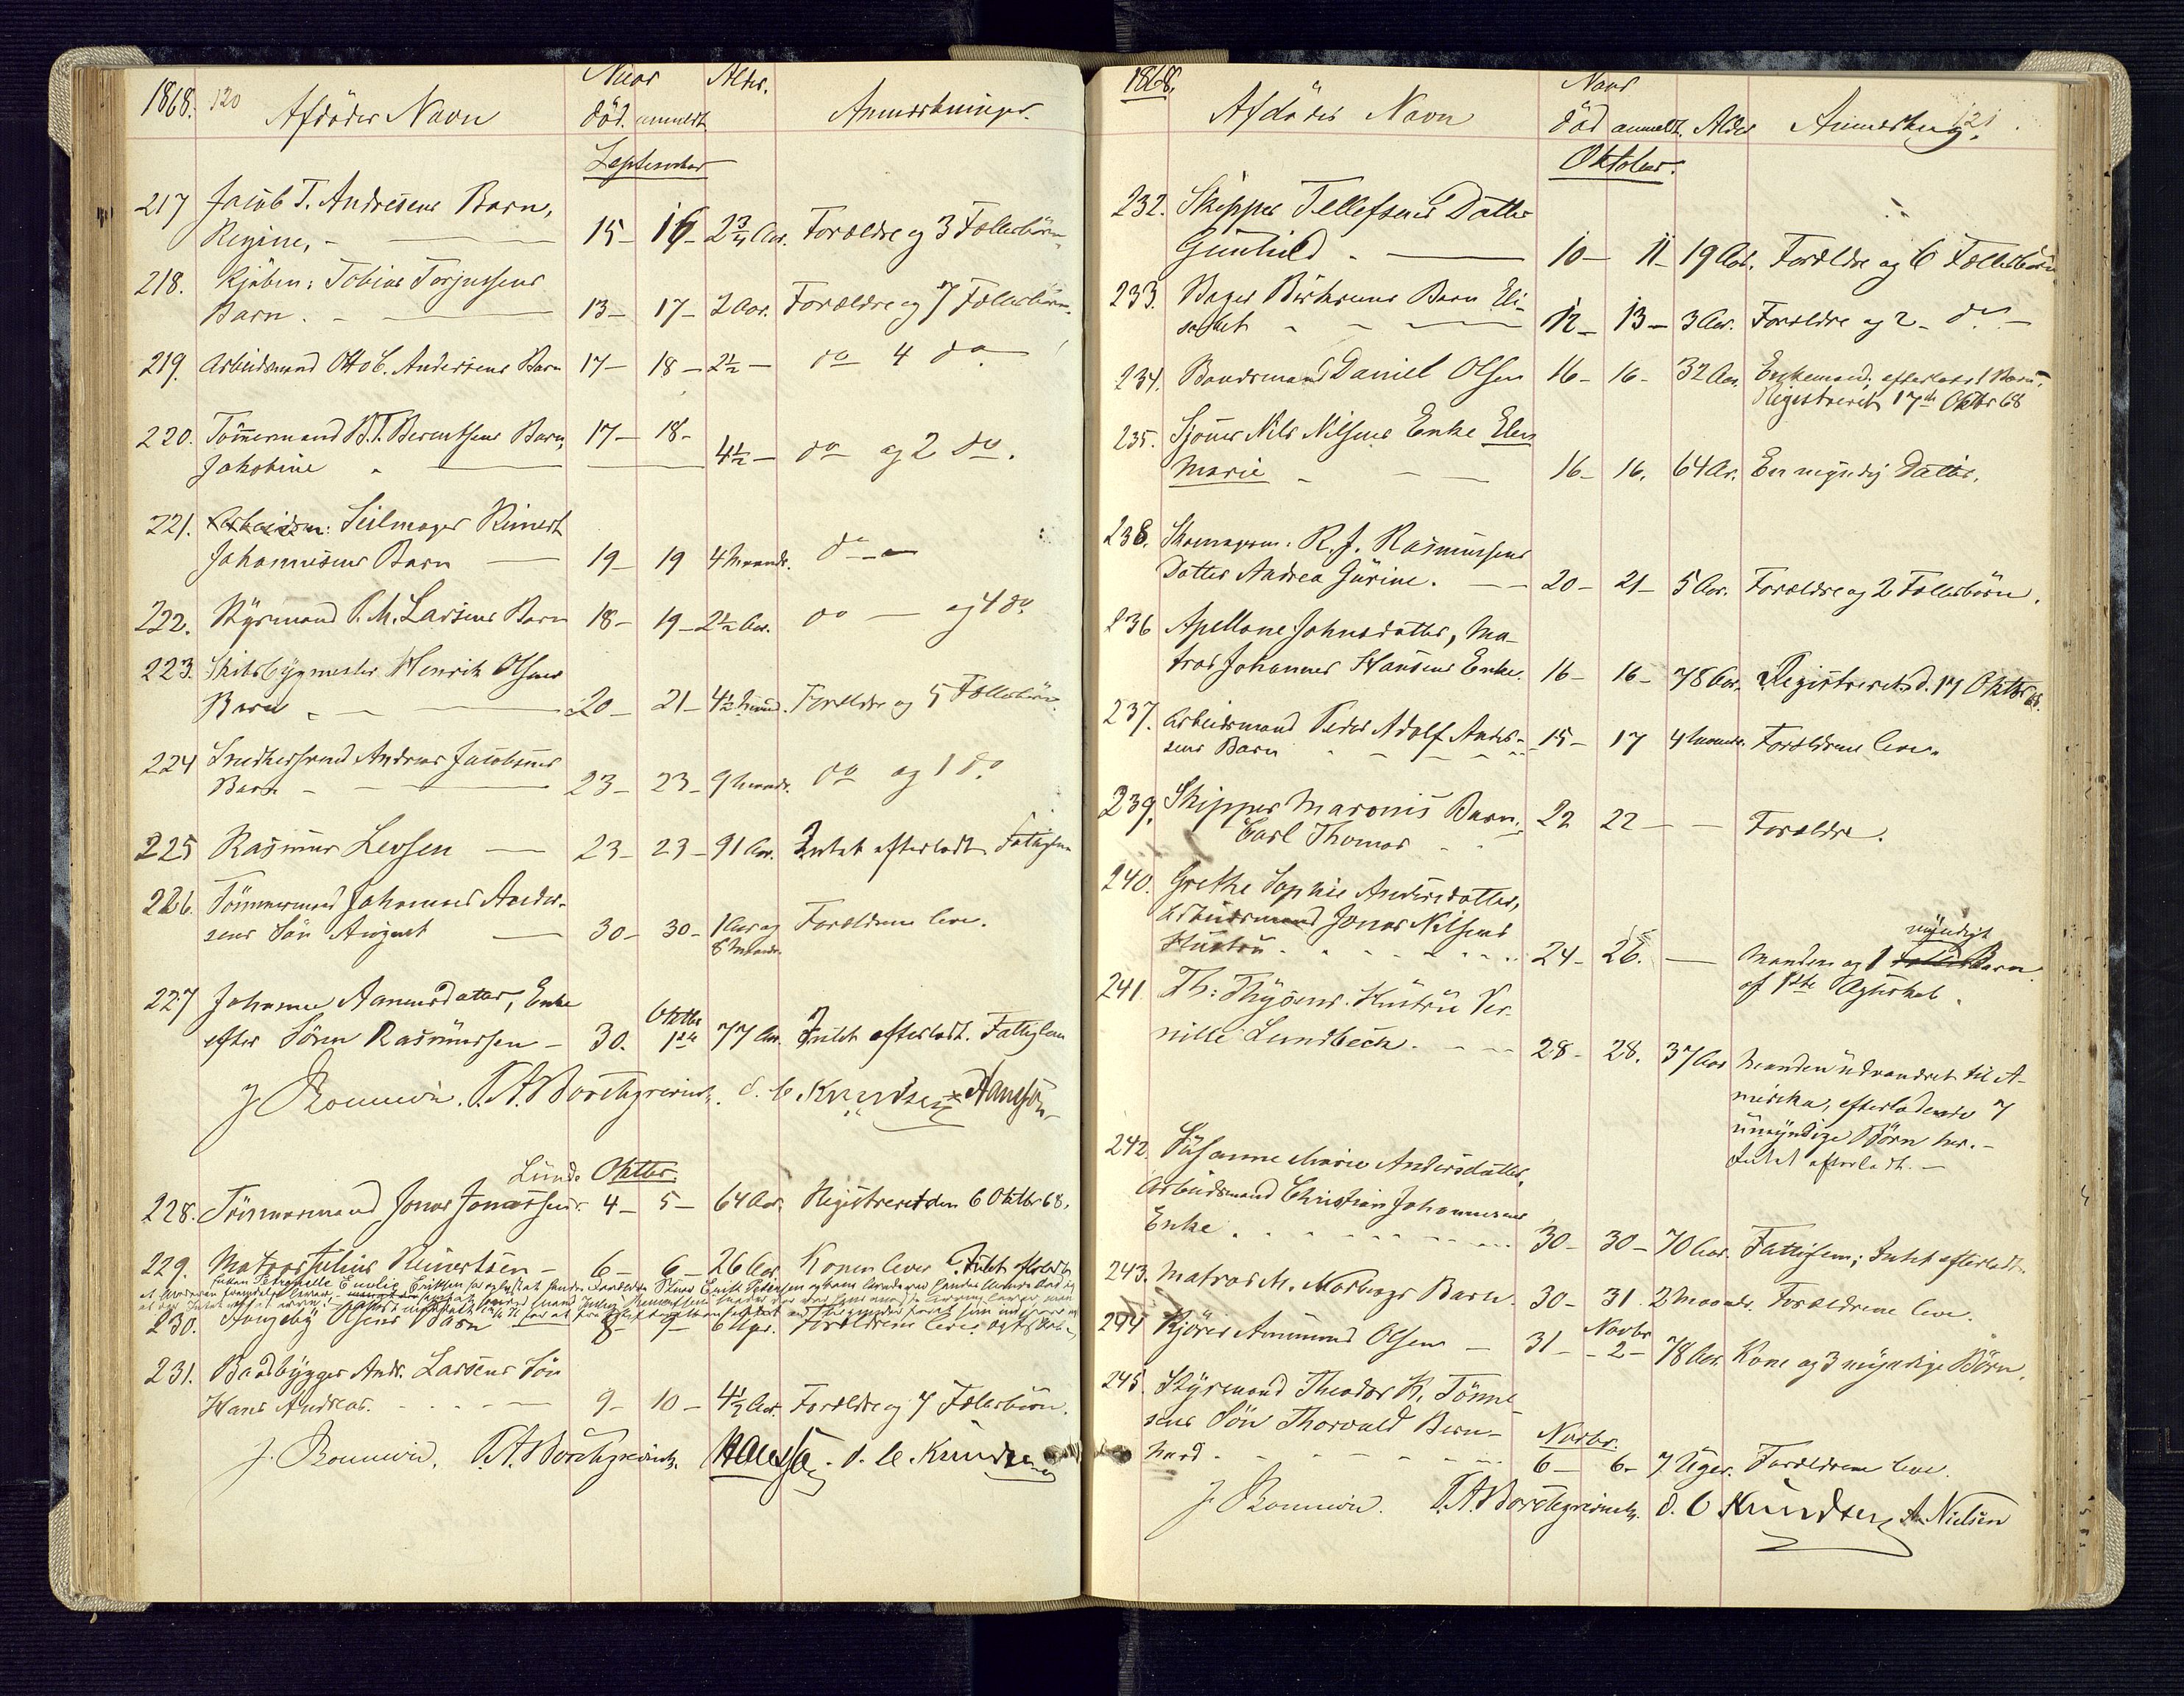 1868. 120
Afdødes Navn
Naar
død. anmeldt
Alder.
Anmærkninger.
September
217 Jacob T. Andresens Barn,
Regine, - 15- 16- 2 3/4 Aar. Forældre og 3 Fællesbørn
218. Kjøbm: Tobias Torjussens
Barn. - 13- 17- 2 Aar. Forældre og 7 Fællesbørn.
219. Arbeidsmand Otto C. Andersens Barn 17- 18- 2 1/2 - do 4 do
220. Tømmermand B.T. Berentsens Barn, 17- 18-
Jakobine 4 1/2 - do og 2 do.
221. Arbeidsm: Seilmager Reinert
Johannesens Barn 19- 19 4 Maand. do -
222. Styrmand P. M. Larsens Barn 18- 19- 2 1/2 Aar. do - og 4 do
223. Skibsbygmester Henrik Olsens
Barn - 20- 21- 4 1/2 Maand. Forældre og 5 Fællesbørn.
224 Smedkersvend Andreas Jacobsens
Barn - 23- 23- 9 Maand. do og 1 do
225 Rasmus Levsen 23- 23- 91 Aar. Intet efterladt. Fattiglem
226. Tømmermand Johannes Ander-
sens Søn August 30- 30- 1 Aar og Forældrene leve.
8 Maand.
227 Johanne Aanensdatter, Enke
efter Søren Rasmussen - 30. Oktbr 1ste 77 Aar. Intet efterladt. Fattiglem
J Roumwie. T.A. Borchgrevink. O. C. Knudsen Hansson
Lunde Oktbr.
228. Tømmermand Jonas Jonassen. 4- 5- 64 Aar. Registreret den 6 Oktbr 68.
229. Matros Julius Reinertsen - 6- 6- 26 Aar Konen lever Intet efterladt
230. Olsens Barn 8- 9- 6 Uger. Forældrene leve
231. Baadbygger Andr. Larsens Søn
Hans Andreas. - 9- 10- 4 1/2 Aar. Forældre og 7 Fællesbørn.
J. Roumwie. T.A. Borchgrevink. Hansson. O. C. Knudsen
1868. 121
Afdødes Navn
Naar
død anmeldt. Alder Anmerkning.
Oktober.
232. Skipper Tellefsens Datter
Gunhild - 10- 11- 19 Aar. Forældre og 6 Fællesbørn
233. Bager Birkrems Barn Eli-
sabet - 12- 13- 3 Aar. Forældre og 2 - do -
234. Bandsmand Daniel Olsen 16- 16- 32 Aar. Enkemand, efterladt 1 Barn.
Registreret 17de Oktbr 68
235. Sjømd Nils Nilsens Enke Elen
Marie - 16- 16. 64 Ar. En myndig Datter.
238. Skomagerm. R. J. Rasmussens
Datter Andrea Gurine. - 20- 21- 5 Aar. Forældre og 2 Fællesbørn.
236 Apellone Johnsdatter, Ma-
tros Johannes Hansens Enke. 16- 16- 78 Aar. Registreret d. 17 Oktbr 68.
237. Arbeidsmand Peder Adolf Ander-
sens Barn 15- 17 4 Maand. Forældrene leve.
239. Skipper Maronis Barn, 22 22 - - Forældre.
Carl Thomas
240. Grethe Sophie Andersdatter,
Arbeidsmand Jonas Nilsens
Hustru. 24- 26. - Manden og 1 myndigt Barn
af 1ste Ægteskab.
241. Th: Thysens Hustru Per-
nille Lundbeck. - 28- 28. 37 Aar Manden udvandret til A-
merika, efterladende 7
umyndige Børn her. -
Intet efterladt. -
242. Susanne Marie Andersdatter,
Arbeidsmand Christian Johannesens
Enke. 30- 30- 70 Aar. Fattiglem; Intet efterladt.
243. Matros M. Norbergs Barn. 30- 31. 2 Maander. Forældrene leve.
244 Kjører Aamund Olsen - 31- Novbr 2- 78 Aar. Kone og 3 myndige Børn.
245. Styrmand Theodor K. Tønne-
sens Søn Thorvald Bern- Novbr.
hard. 6- 6- 7 Uger. Forældrene leve.
J Roumwie. T.A. Borchgrevink. O. C Knudsen A. Nielsen